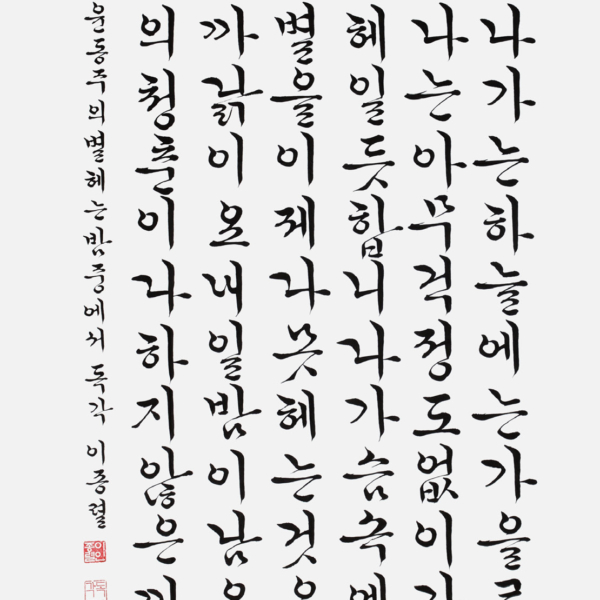 나가는하늘에는가을
나는아무걱정도없이
헤일듯합니다가슴속에
별을이제다못헤는것
까닭이요내일밤이남
의청춘이다하지않은
윤동주의별헤는밤중에서 독각 이종렬